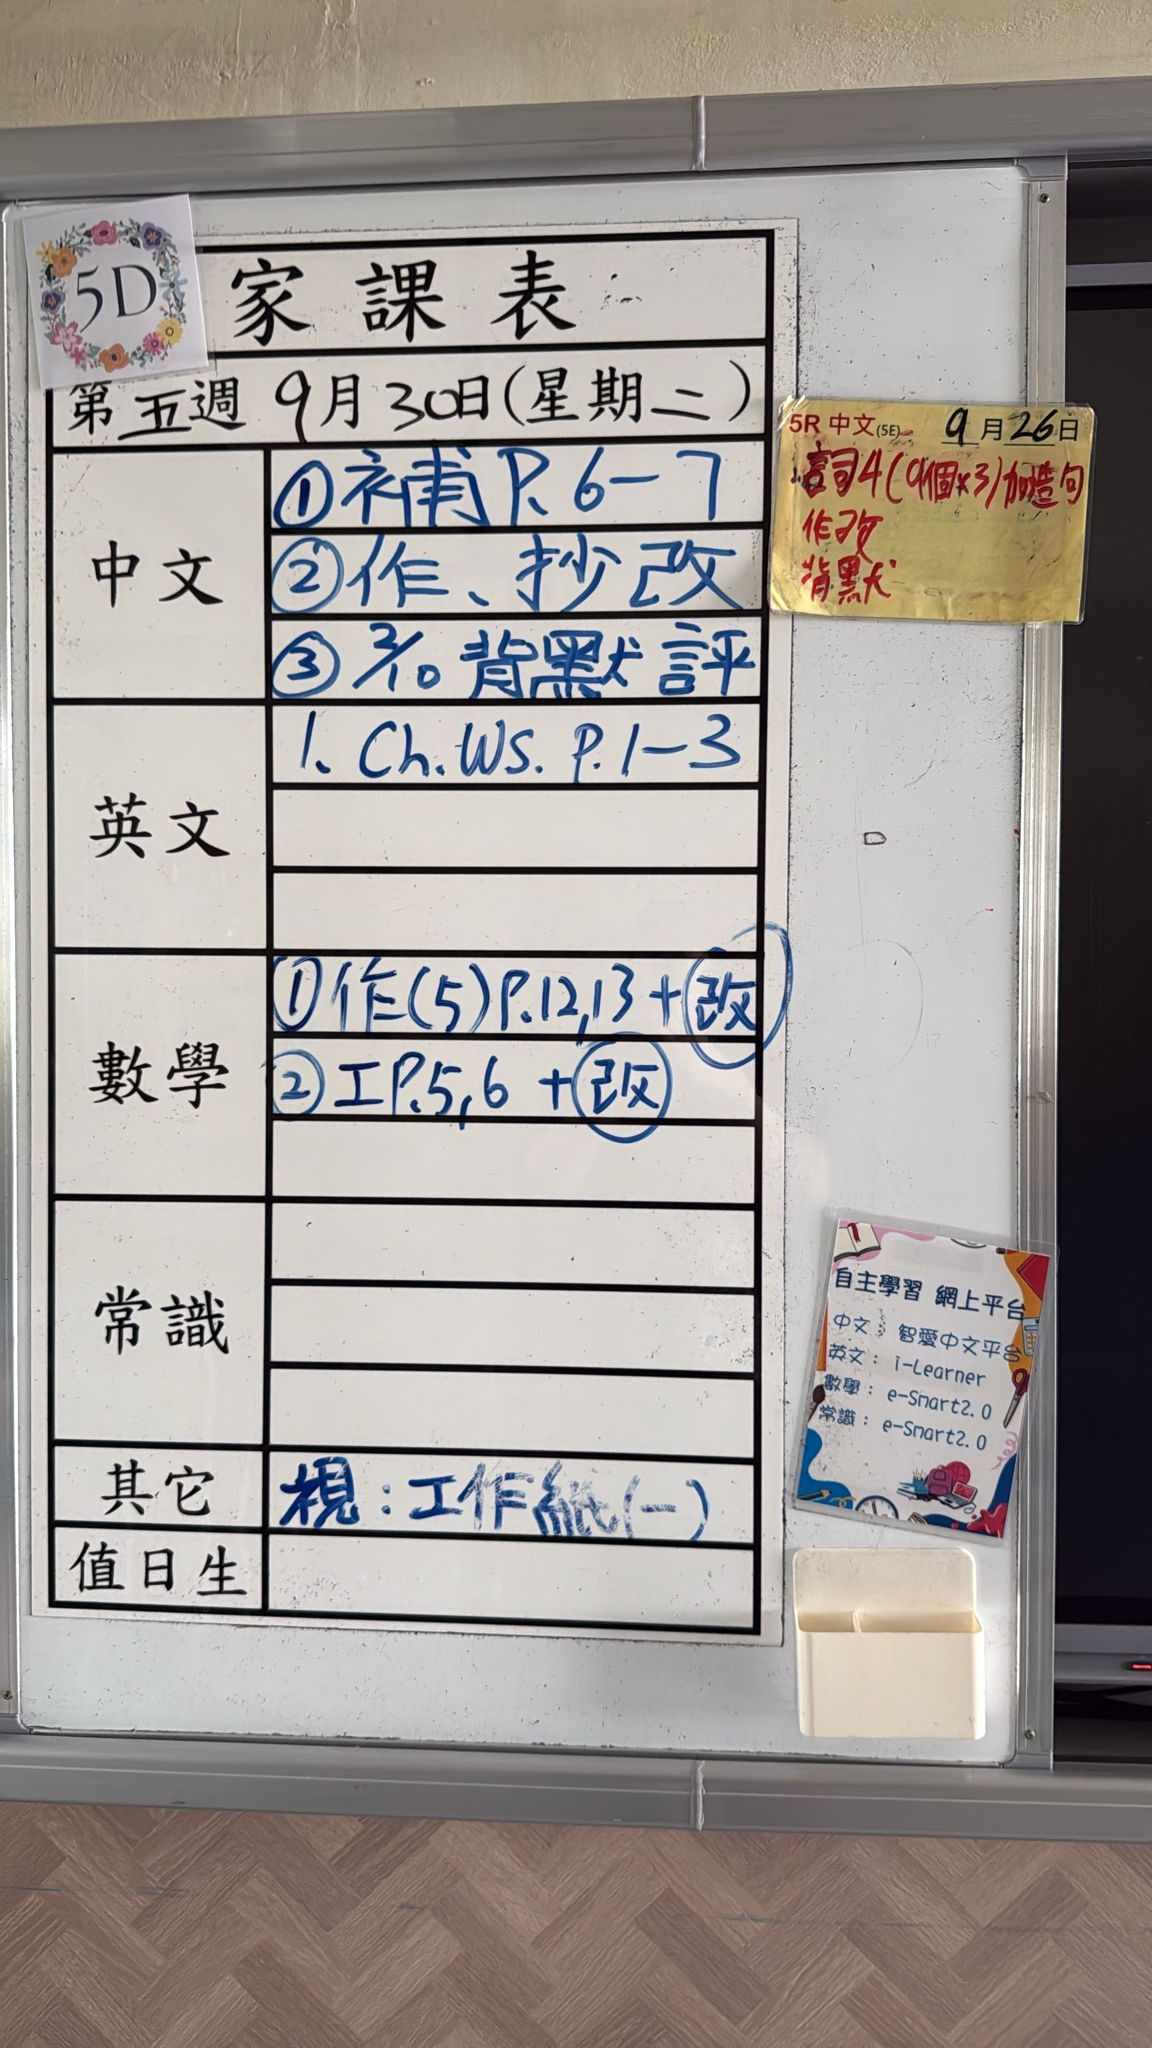 5D
家課表
第五週 9月30日(星期二)
中文
①補P.6-7
②作、抄改
③2/10背默評
英文
1. Ch.WS. P.1-3
數學
①作(5)P.12,13+改
②工P.5,6 +改
常識
其它
視:工作紙(一)
值日生
5R 中文(5E) 9月26日
詞4(9個x3)加造句
作改
背默
自主學習 網上平台
中文: 智愛中文平台
英文: i-Learner
數學: e-Smart2.0
常識: e-Smart2.0